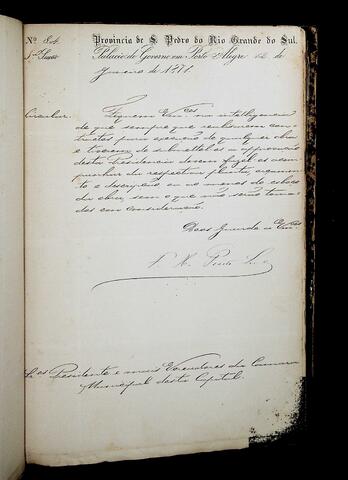 Nº 84 Provincia de S. Pedro do Rio Grande do Sul.
Palacio do Governo em Porto Alegre 12 de
Janeiro de 1871.
Circular.
Fiquem Vm.ces na intelligencia
de que sempre que celebrarem con-
tractos para execução de qualquer obra
e tiverem de submettel-os a approvação
desta Presidencia devem fazel-os acom-
panhar da respectiva planta, orçamen-
to e descripção ou ao menos de esboço
da obra, sem o que não serão toma-
dos em consideração.
Deos Guarde a Vm.ces
Srs Presidente e mais Vereadores da Camara
Municipal desta Capital.